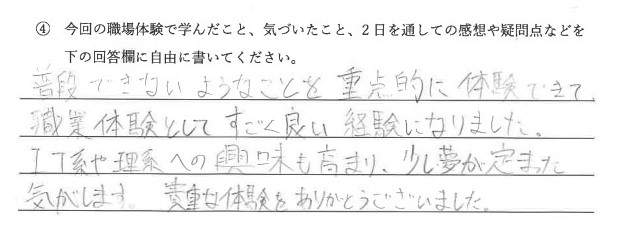 ④ 今回の職場体験で学んだこと、気づいたこと、２日を通しての感想や疑問点などを
下の回答欄に自由に書いてください。
普段できないようなことを重点的に体験できて、
職業体験としてすごく良い経験になりました。
IT系や理系への興味も高まり、少し夢が定まった
気がします。貴重な体験をありがとうございました。